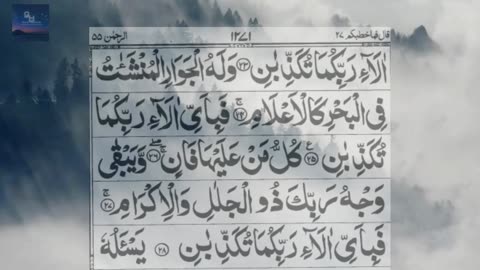 قال فما خطبکم ۲۷ الرحمٰن ۵۵
اٰلَآءِ رَبِّكُمَا تُكَذِّبٰنِ ﴿۲۳﴾ وَلَهُ الْجَوَارِ الْمُنْشَـٰٔتُ
فِى الْبَحْرِ كَالْاَعْلَامِ ﴿۲۴﴾ۚ فَبِاَىِّ اٰلَآءِ رَبِّكُمَا
تُكَذِّبٰنِ ﴿۲۵﴾ؑ كُلُّ مَنْ عَلَيْهَا فَانٍ ﴿۲۶﴾ۚۖ وَّيَبْقٰى
وَجْهُ رَبِّكَ ذُو الْجَلٰلِ وَالْاِكْرَامِ ﴿۲۷﴾ۚ
فَبِاَىِّ اٰلَآءِ رَبِّكُمَا تُكَذِّبٰنِ ﴿۲۸﴾ يَسْـَٔلُهٗ